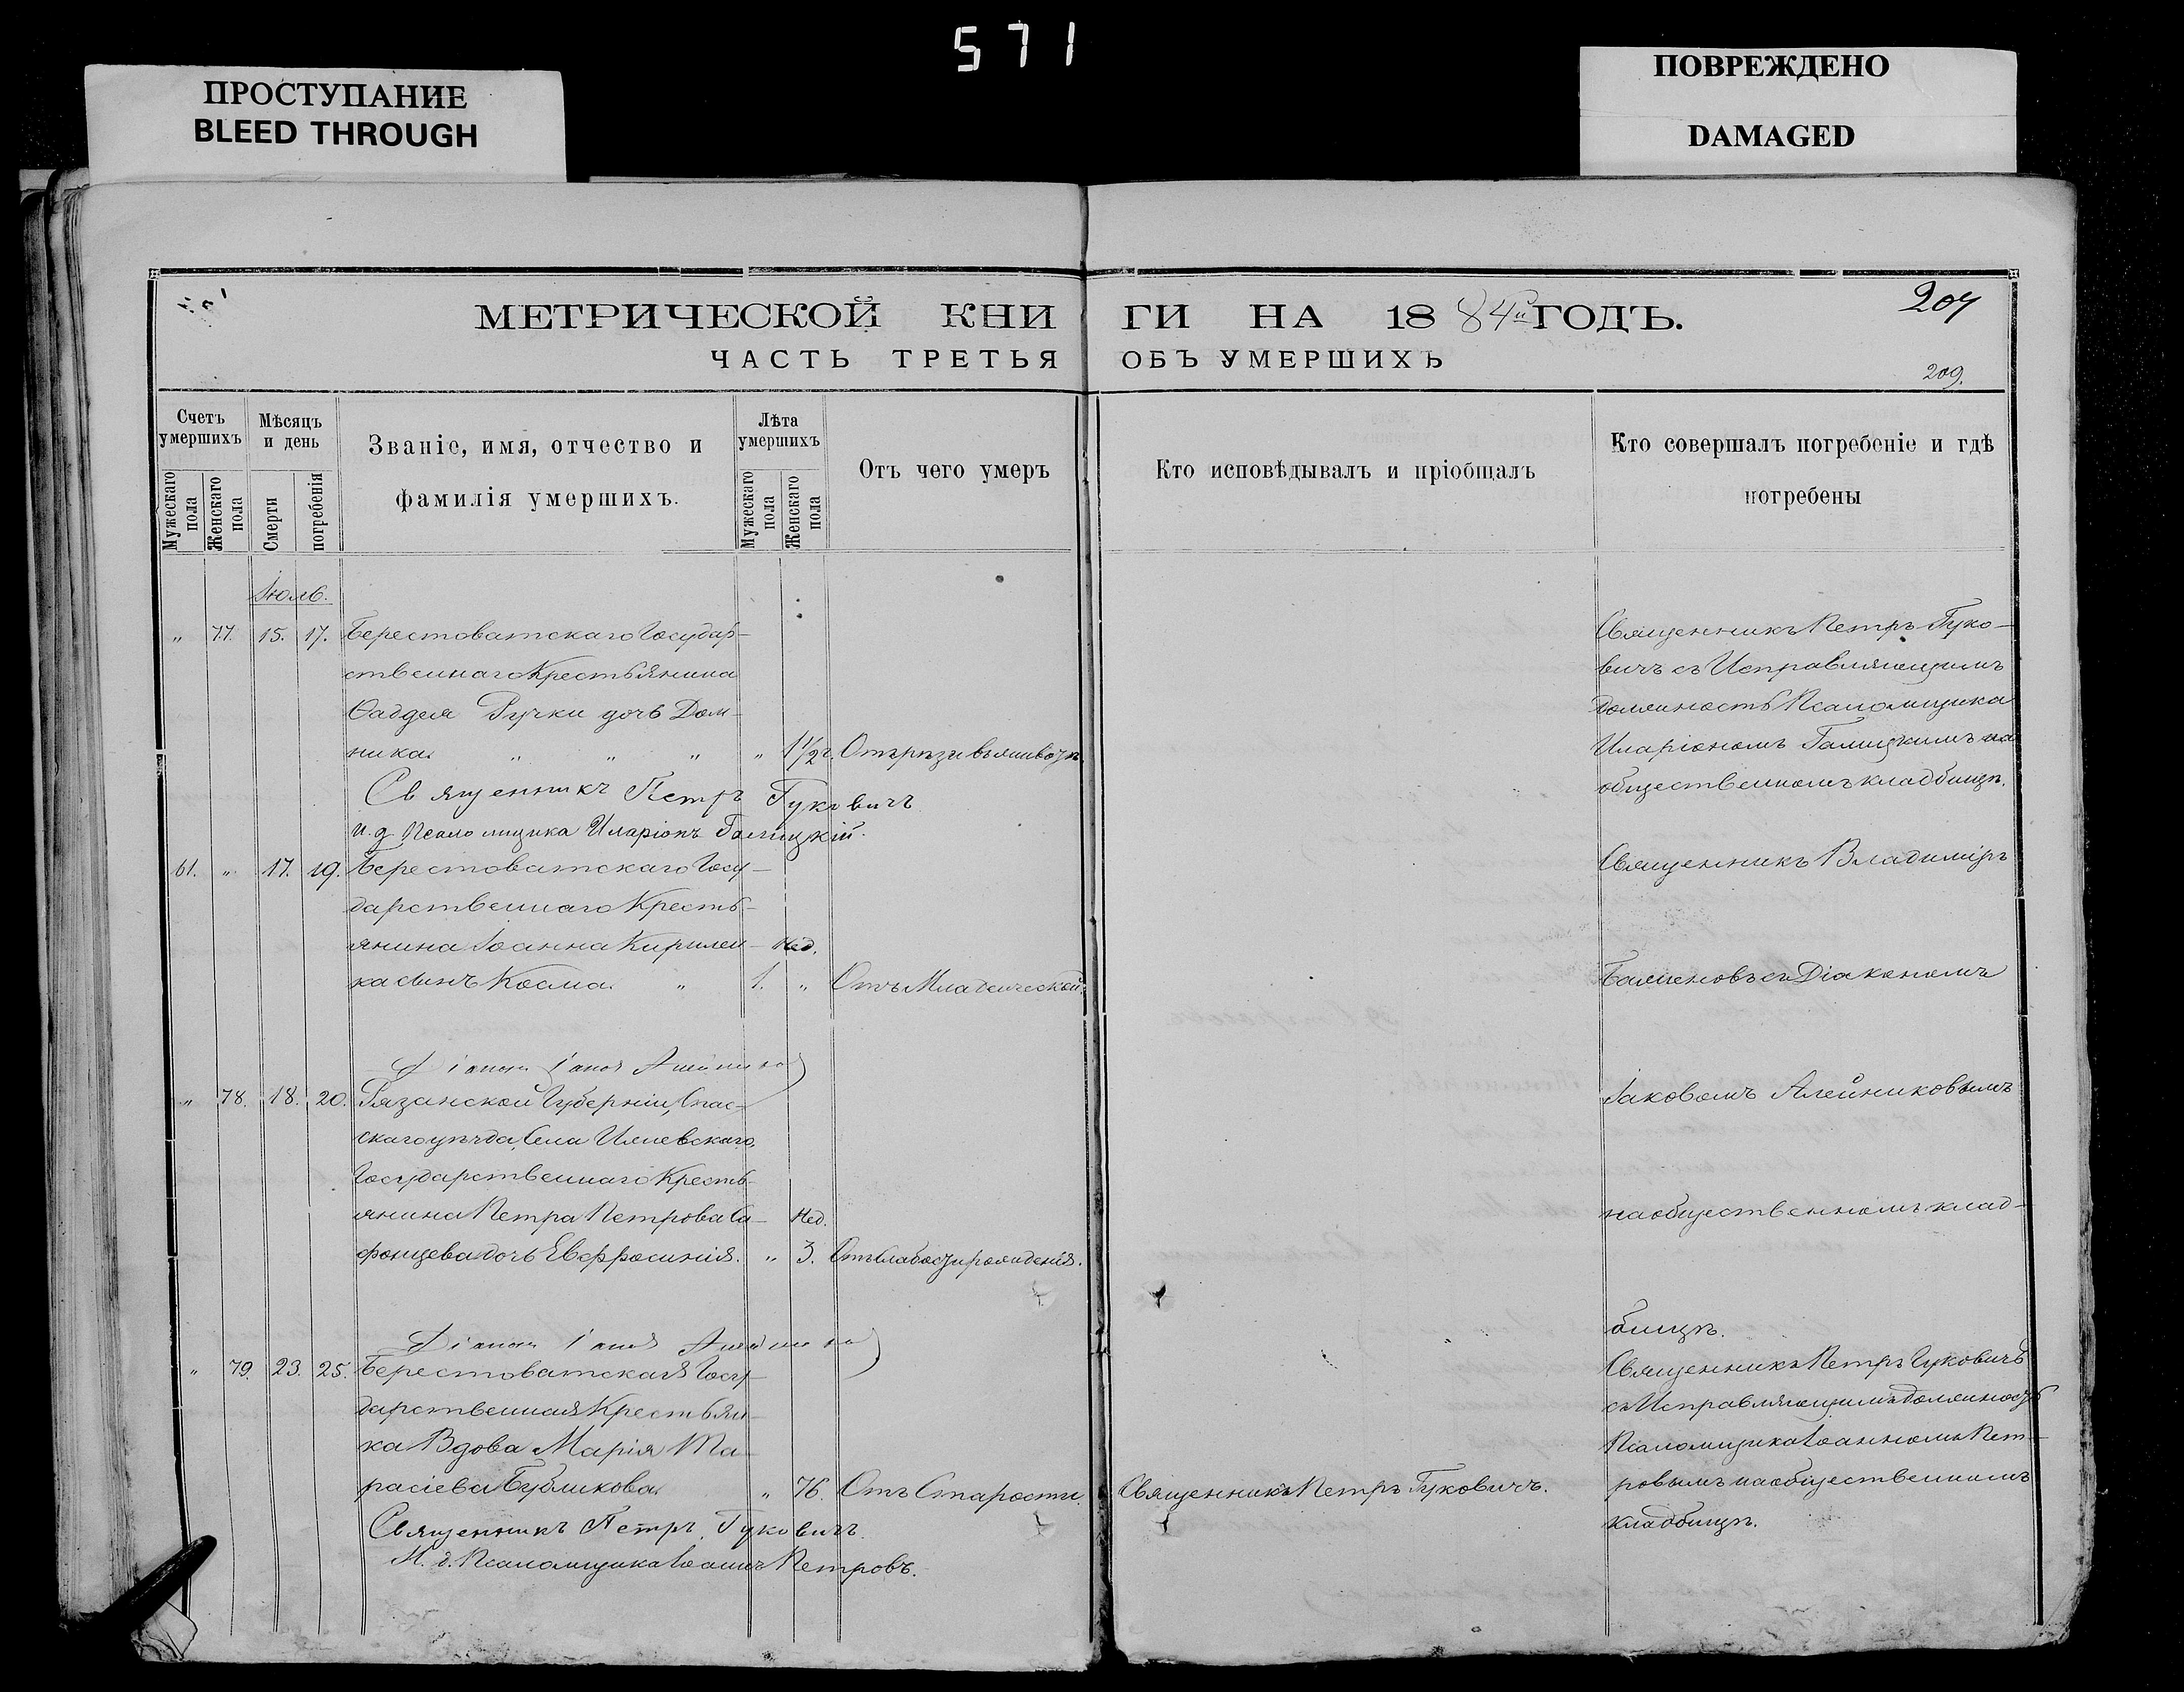 571
ПРОСТУПАНИЕ
BLEED THROUGH
ПОВРЕЖДЕНО
DAMAGED
МЕТРИЧЕСКОЙ КНИГИ НА 1884й ГОДЪ.
207
ЧАСТЬ ТРЕТЬЯ ОБЪ УМЕРШИХЪ
209.
Счетъ умершихъ
Мужескаго пола
Женскаго пола
Мѣсяцъ и день
Смерти
погребенія
Званіе, имя, отчество и
фамилія умершихъ.
Лѣта умершихъ
Мужескаго пола
Женскаго пола
Отъ чего умеръ
Кто исповѣдывалъ и пріобщалъ
Кто совершалъ погребеніе и гдѣ
погребены
Іюль.
" 77. 15. 17. Берестоватскаго Государ-
ственнаго Крестьянина
Ѳаддея Ручки дочь Дом-
ника. " " " " 1 1/2 г. Отъ рѣзи въ животѣ
Священникъ Петръ Гуковичъ
и. д. Псаломщика Иларіонъ Галицкій.
Священникъ Петръ Гуко-
вичъ съ Исправляющимъ
должность Псаломщика
Иларіономъ Галицкимъ на
общественномъ кладбищѣ.
61. " 17. 19. Берестоватскаго Госу-
дарственнаго Кресть-
янина Іоанна Кирилен- Нед.
ка сынъ Косма. " 1. " Отъ Младенческой.
Священникъ Владиміръ
Баженовъ съ Діакономъ
Діаконъ Іаковъ
" 78. 18. 20. Рязанской Губерніи, Спас-
скаго уѣзда, Села
Государственнаго Кресть-
янина Петра Петрова Са- Нед.
фонцева дочь Евфросинія. " 3. Отъ слабости рожденія.
Іаковомъ Алейниковымъ
на общественномъ клад-
бищѣ.
Діаконъ Іаковъ
" 79. 23. 25. Берестоватская Госу-
дарственная Крестьян-
ка Вдова Марія Та-
расіева Бубликова. " 76. Отъ Старости. Священникъ Петръ Гуковичъ.
Священникъ Петръ Гуковичъ
И. д. Псаломщика Іоаннъ Петровъ.
Священникъ Петръ Гуковичъ
съ Исправляющимъ должность
Псаломщика Іоанномъ Пет-
ровымъ на общественномъ
кладбищѣ.